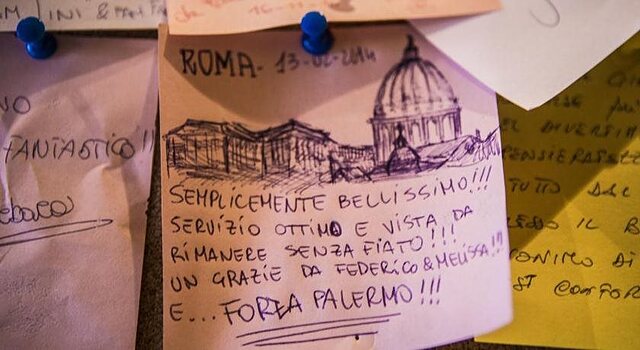 ROMA - 13-02-2014
SEMPLICEMENTE BELLISSIMO!!!
SERVIZIO OTTIMO E VISTA DA
RIMANERE SENZA FIATO!!!
UN GRAZIE DA FEDERICO & MELISSA!!!
E... FORZA PALERMO!!!
NO
FANTASTICO!!
DIVERTIM
TUTTO DAL
IL B
DI
COMFOR